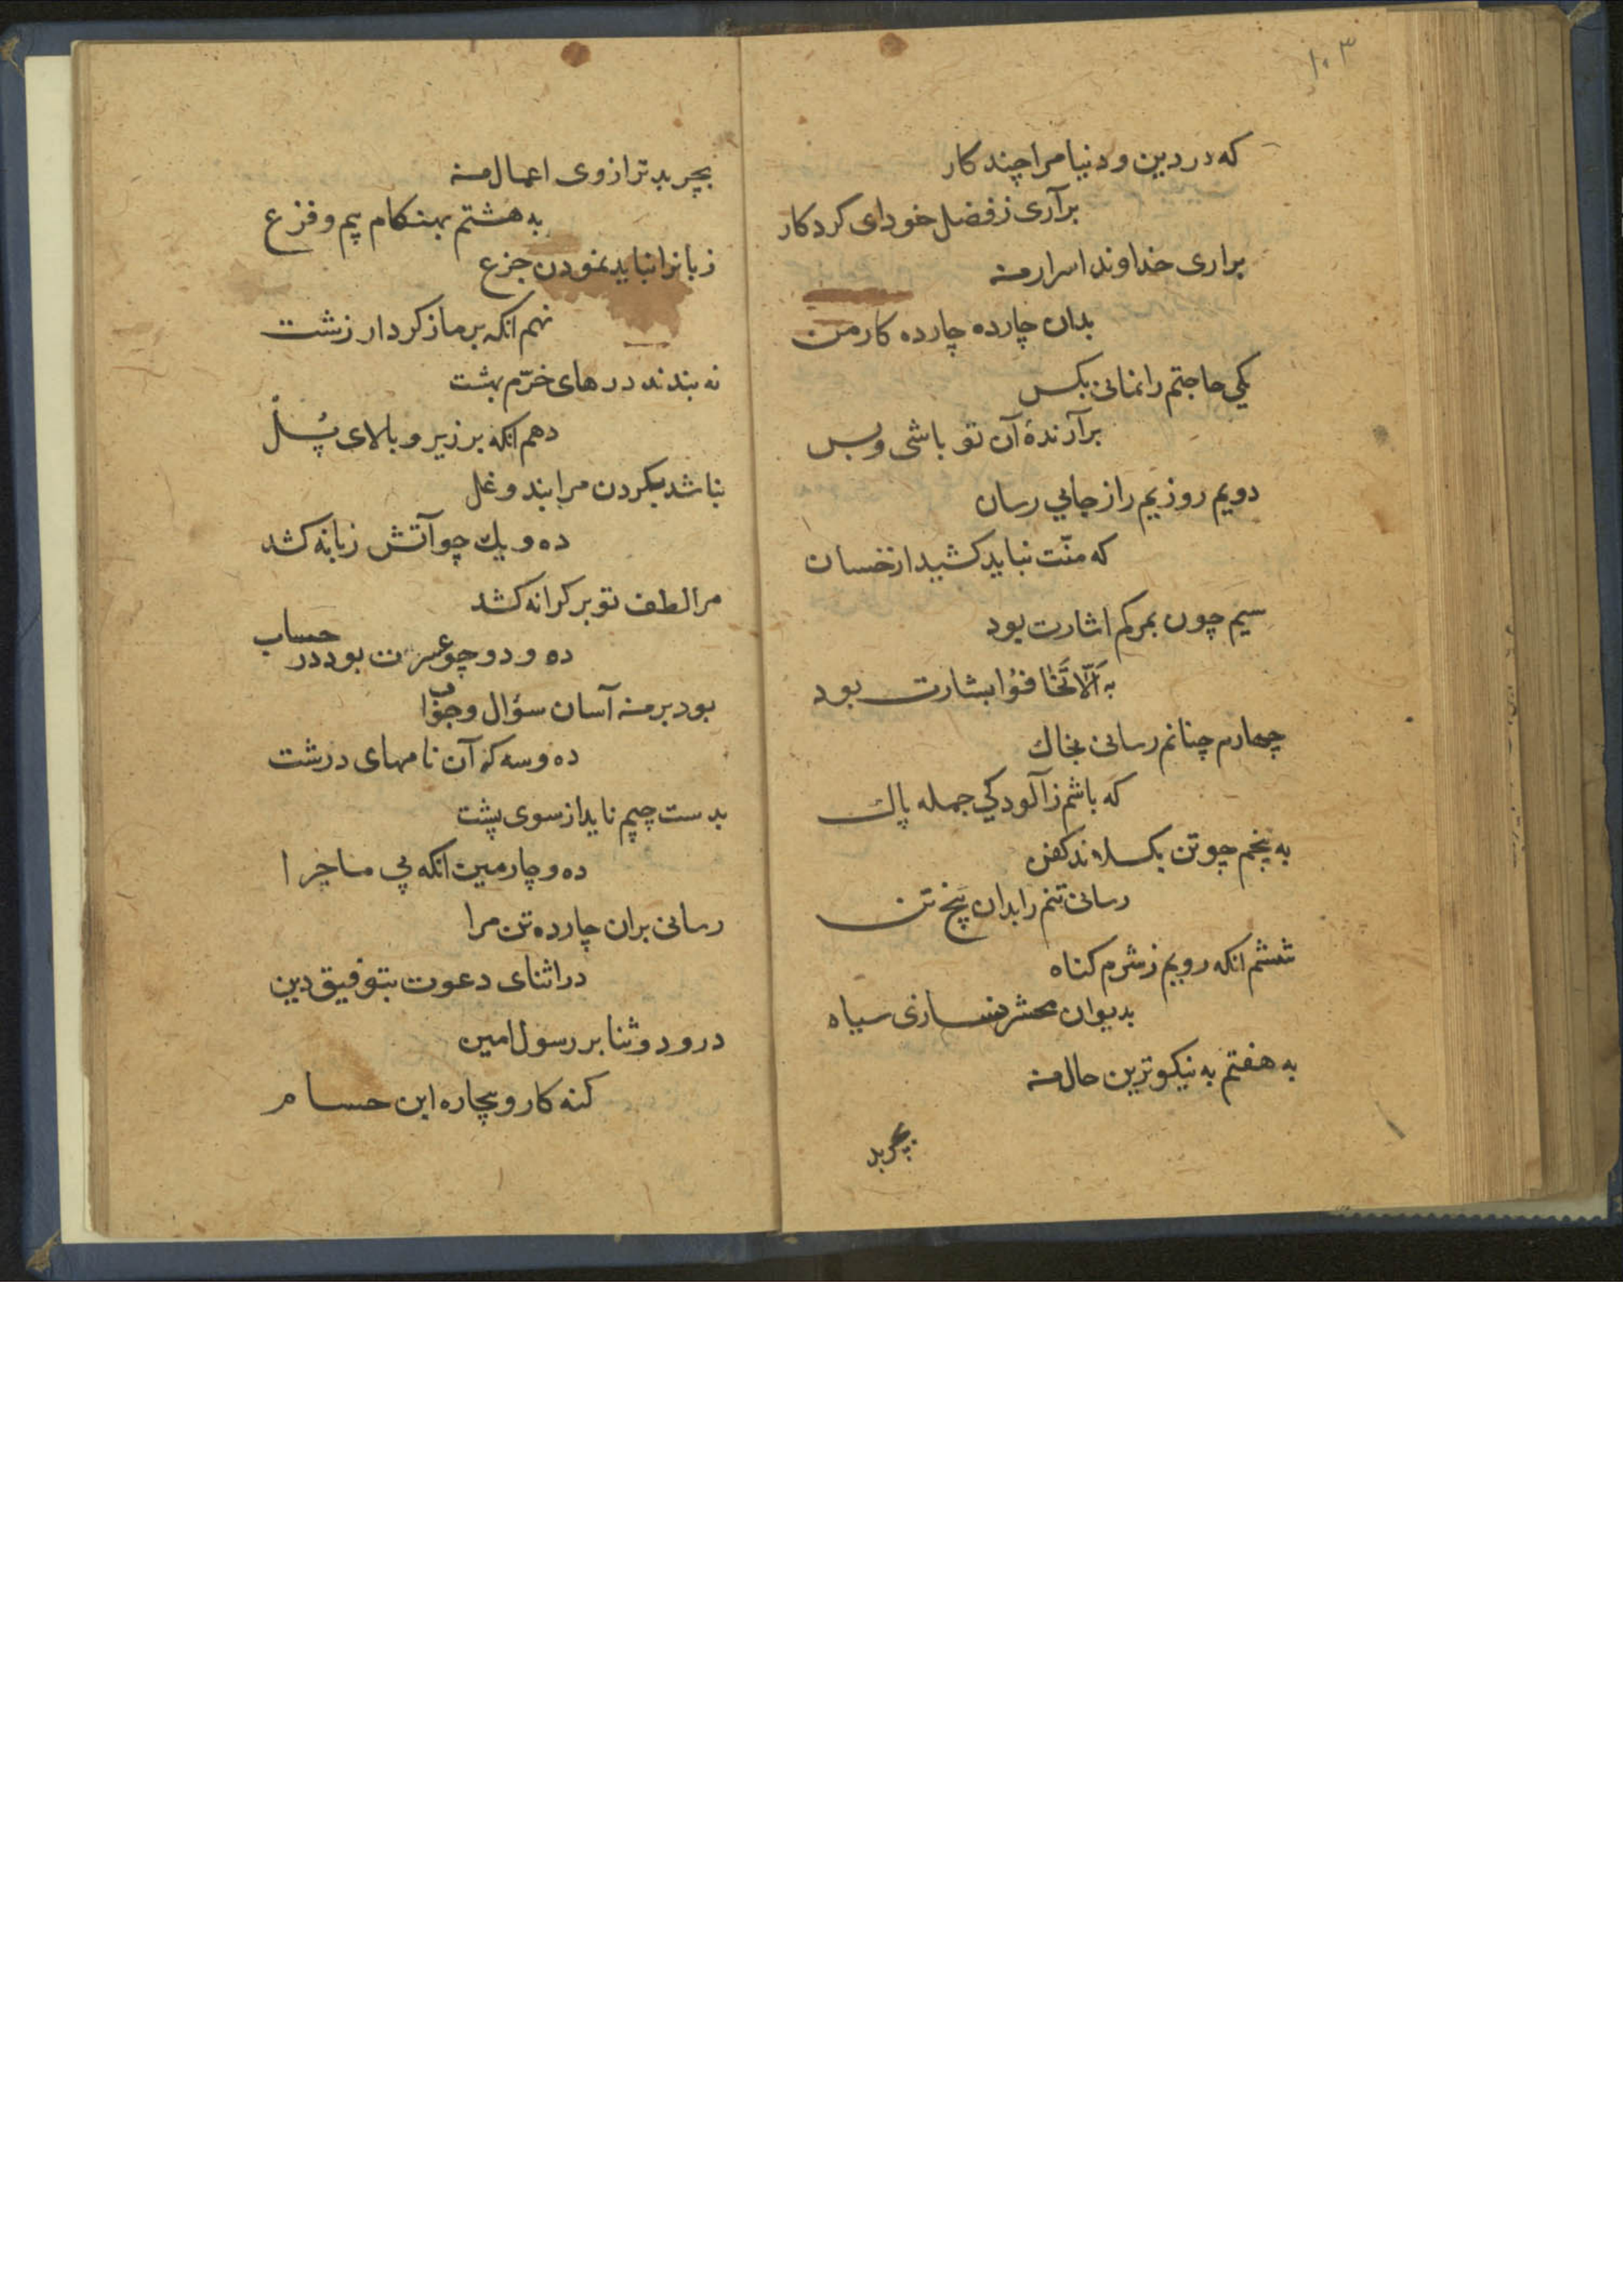 ۱۰۳
که در دین و دنیا مرا چند کار
برآری ز فضل خود ای کردکار
براری خداوند اسرار منه
بدان چارده چارده کار من
یکی حاجتم را نمانی بکس
برآرندهٔ آن تو باشی و بس
دویم روزیم را ز جایی رسان
که منّت نباید کشید از خسان
سیم چون بمرکم اشارت بود
به اَلّا تَخٰافُوا بشارت بود
چهارم چنانم رسانی بخاك
که باشم ز آلودکی جمله پاك
به پنجم چو تن بکسلاند کفن
رسانی تنم را بدان پنج تن
ششم انکه رویم ز شرم کناه
بدیوان محشر نسازی سیاه
به هفتم به نیکوترین حال منه
بچربد
بچربد ترازوی اعمال منه
به هشتم بهنکام بیم و فزع
زبانرا نباید نمودن جزع
نهم انکه بر ما ز کردار زشت
نه بندند درهای خرّم بهشت
دهم انکه بر زیر و بالای پُلْ
نباشد بکردن مرا بند و غل
ده و یك چو آتش زبانه کشد
مرا لطف تو بر کرانه کشد
ده و دو چو عسرت بود در حساب
بود بر منه آسان سؤال و جواب
ده و سه که آن نامهای درشت
بدست چپم ناید از سوی پشت
ده و چارمین انکه بی ماجرا
رسانی بران چارده تن مرا
در اثنای دعوت بتوفیق دین
درود و ثنا بر رسول امین
کنه کار و بیچاره ابن حسام